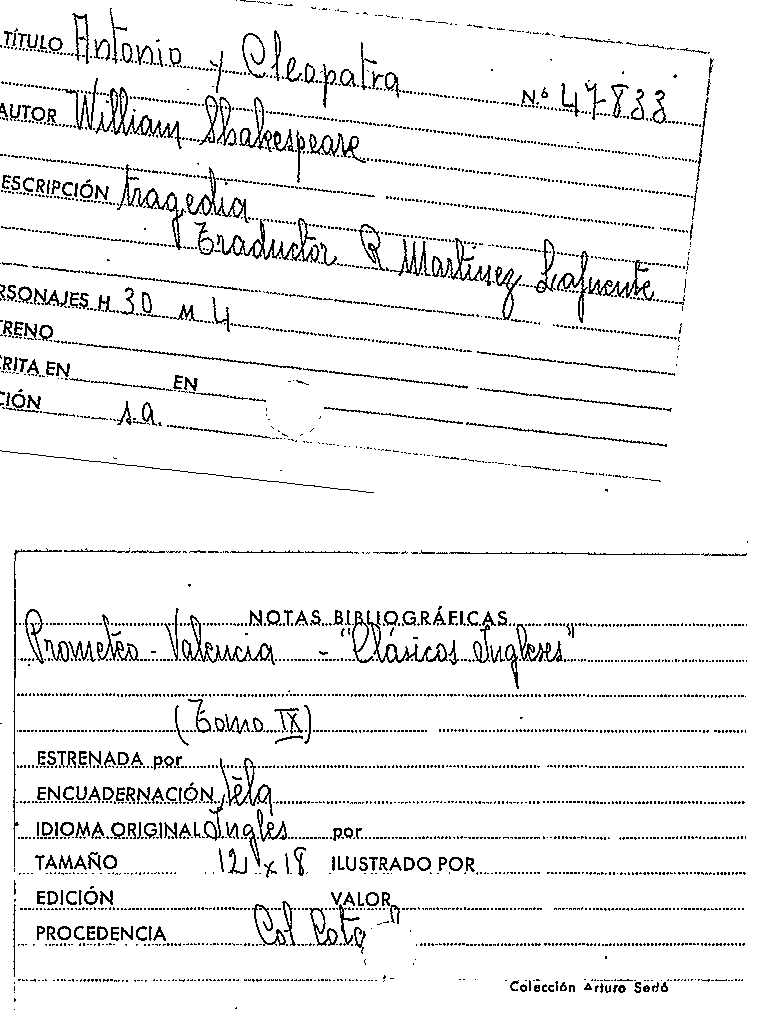 TÍTULO Antonio y Cleopatra Nº 47833
AUTOR William Shakespeare
ESCRIPCIÓN tragedia
Traductor R Martinez Lafuente
RSONAJES H 30 M 4
TRENO
RITA EN EN
CIÓN s.a.
NOTAS BIBLIOGRÁFICAS
Prometeo - Valencia - "Clásicos Ingleses"
(Tomo IX)
ESTRENADA por
ENCUADERNACIÓN tela
IDIOMA ORIGINAL Ingles por
TAMAÑO 12 x 18 ILUSTRADO POR
EDICIÓN VALOR
PROCEDENCIA Col
Colección Arturo Sedó